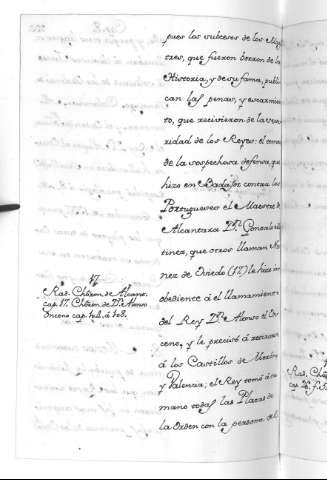 pues los sucesos de los Maes
tres, que fueron borron de la
Historia, y de su fama, publi
can las penas, y escarmien
to, que recivieron de la
ridad de los Reyes: el
de la sospechosa defensa, que
hizo en Badajoz contra los
Portugueses el Maestre de
Alcantara Dⁿ. Gonzalo
tinez, que otros llaman
nez de Oviedo (17) le hizo in
obediente á el llamamiento
del Rey Dⁿ. Alonso el On
ceno, y le precisó á
á los Castillos de
y Valencia; el Rey tomó á su
mano todas las Plazas de
la Orden con la persona del
17
Rad. Chron. de Alcant.
cap. 17. Chron. de Dⁿ. Alonso
Onceno cap.
Rad.
cap.